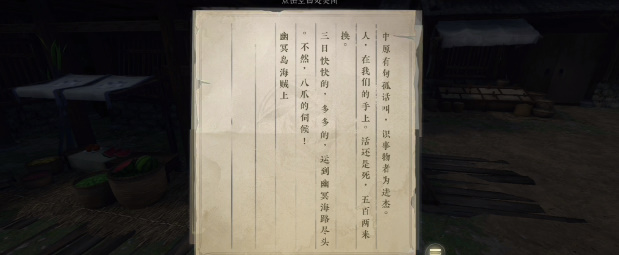 中原有句孤话叫，识事物者为进杰。
人，在我们的手上。活还是死，五百两来
换。
三日快快的，多多的，运到幽冥海路尽头
。不然，八爪的伺候！
幽冥岛海贼上